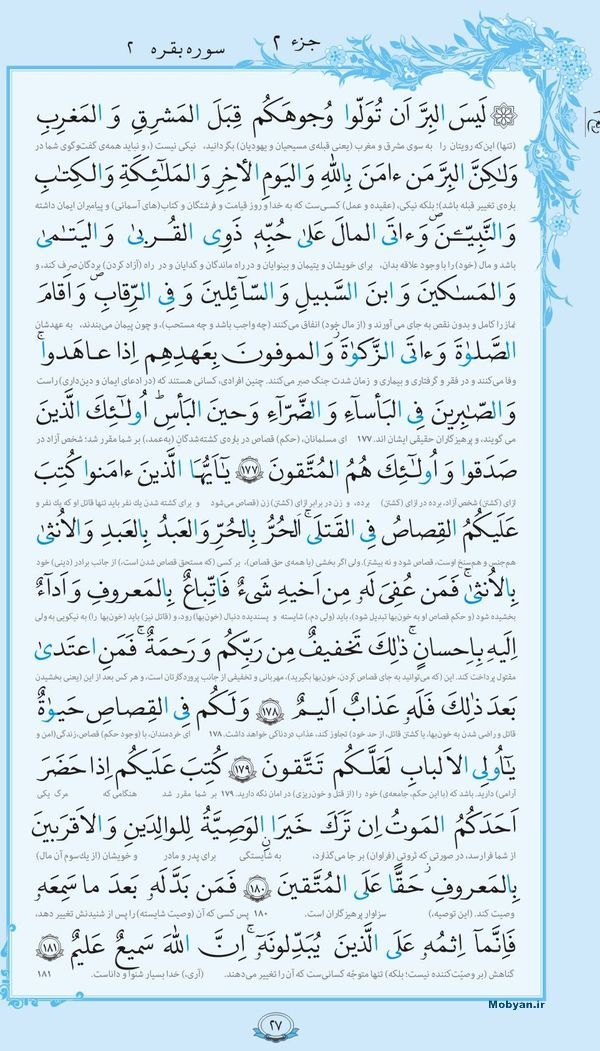 جزء ۲
سوره بقره ۲
لَيسَ البِرَّ اَن تُوَلّوا وُجوهَكُم قِبَلَ المَشرِقِ وَ المَغرِبِ
(تنها) این‌که رویتان را به سوی مشرق و مغرب (یعنی قبله‌ی مسیحیان و یهودیان) بگردانید، نیکی نیست (، و نباید همه‌ی گفت‌وگوی شما در
وَلٰكِنَّ البِرَّ مَن ءامَنَ بِاللّٰهِ وَاليَومِ الأخِرِ وَالمَلٰائِكَةِ وَالكِتٰبِ
باره‌ی تغییر قبله باشد)؛ بلکه نیکی، (عقیده و عمل) کسی‌ست که به خدا و روز قیامت و فرشتگان و کتاب(های آسمانی) و پیامبران ایمان داشته
وَالنَّبِيّـنَ وَءاتَى المالَ عَلىٰ حُبِّهٖ ذَوِى القُربىٰ وَ اليَتـٰمىٰ
باشد و مال (خود) را با وجود علاقه بدان، برای خویشان و یتیمان و بینوایان و در راه ماندگان و گدایان و در راه (آزاد کردن) بردگان صرف کند، و
وَالمَسـٰكينَ وَ ابنَ السَّبيلِ وَالسّآئِلينَ وَ فِى الرِّقابِ وَ اَقامَ
نماز را کامل و بدون نقص به جای می آورند و (از مال خود) انفاق می‌کنند (چه واجب باشد و چه مستحب)، و چون پیمان می‌بندند، به عهدشان
الصَّلوٰةَ وَءاتَى الزَّكوٰةَ وَالموفونَ بِعَهدِهِم اِذا عـاهَدوا
وفا می‌کنند و در فقر و گرفتاری و بیماری و زمان شدت جنگ صبر می‌کنند. چنین افرادی، کسانی هستند که (در ادعای ایمان و دین‌داری) راست
وَالصّـٰبِرينَ فِى البَأساءِ وَالضَّرّآءِ وَحينَ البَأسِ اُولـٰئِكَ الَّذينَ
می گویند، و پرهیزگاران حقیقی ایشان اند. ۱۷۷ ای مسلمانان، (حکم) قصاص در باره‌ی کشته‌شدگان (به‌عمد)، بر شما مقرر شد؛ شخص آزاد در
صَدَقوا وَ اُولـٰئِكَ هُمُ المُتَّقونَ ۱۷۷ يٰاَيُّهَا الَّذينَ ءامَنوا كُتِبَ
ازای (کشتن) شخص آزاد، برده در ازای (کشتن) برده، و زن در برابر ازای (کشتن) زن (قصاص می‌شود) و برای کشته شدن یک نفر باید تنها قاتل او که یك نفر و
عَلَيكُمُ القِصاصُ فِى القَتلَى اَلحُرُّ بِالحُرِّ وَالعَبدُ بِالعَبدِ وَالاُنثىٰ
هم‌جنس و هم‌سنخ اوست، قصاص شود و نه بیشتر). ولی اگر بخشی (یا همه‌ی حق قصاص)، بر کسی (که مستحق قصاص شدن است،) از جانب برادر (دینی) خود
بِالاُنثىٰ فَمَن عُفِىَ لَهٗ مِن اَخيهِ شَىءٌ فَاتِّباعٌ بِالمَعروفِ وَ اَدآءٌ
بخشیده شود (و حکم قصاص او به خون‌بها تبدیل شود)، باید (ولی دم،) شایسته و پسندیده دنبال (خون‌بها) رود، و (قاتل نیز) باید خون‌بها را به نیکویی به ولی
اِلَيهِ بِاِحسانٍ ذٰلِكَ تَخفيفٌ مِن رَبِّكُم وَ رَحمَةٌ فَمَنِ اعتَدىٰ
مقتول پرداخت کند. این (که می‌توانید به جای قصاص کردن، خون‌بها بگیرید)، مهربانی و تخفیفی از جانب پروردگارتان است، و هر کس بعد از این (یعنی بخشیدن
بَعدَ ذٰلِكَ فَلَهٗ عَذابٌ اَليمٌ ۱۷۸ وَلَكُم فِى القِصاصِ حَيوٰةٌ
قاتل و راضی شدن به خون‌بها، یا کشتن قاتل، از حد خود) تجاوز کند، عذاب دردناکی خواهد داشت. ۱۷۸ ای خردمندان، با (وجود حکم) قصاص، زندگی (امن و
يٰاُولِى الاَلبابِ لَعَلَّـكُم تَتَّقونَ ۱۷۹ كُتِبَ عَلَيكُم اِذا حَضَرَ
آرامی) دارید. باشد که (با این حکم، جامعه‌ی) خود را (از قتل و خون‌ریزی) در امان نگه دارید. ۱۷۹ بر شما مقرر شد هنگامی که مرگ یکی
اَحَدَكُمُ المَوتُ اِن تَرَكَ خَيرًا الوَصِيَّةُ لِلوالِدَينِ وَالاَقرَبينَ
از شما فرارسد، در صورتی که ثروتی (فراوان) بر جا می‌گذارد، به شایستگی برای پدر و مادر و خویشان (از یك‌سوم آن مال)
بِالمَعروفِ حَقًّا عَلَى المُتَّقينَ ۱۸۰ فَمَن بَدَّلَهٗ بَعدَ ما سَمِعَهٗ
وصیت کند. (این توصیه،) سزاوار پرهیزگاران است. ۱۸۰ پس کسی که آن (وصیت شایسته) را پس از شنیدنش تغییر دهد،
فَاِنَّمآ اِثمُهٗ عَلَى الَّذينَ يُبَدِّلونَهٗ اِنَّ اللّٰهَ سَميعٌ عَليمٌ ۱۸۱
گناهش (بر وصیّت‌کننده نیست؛ بلکه) تنها متوجّه کسانی‌ست که آن را تغییر می‌دهند. (آری،) خدا بسیار شنوا و داناست. ۱۸۱
Mobyan.ir
۲۷